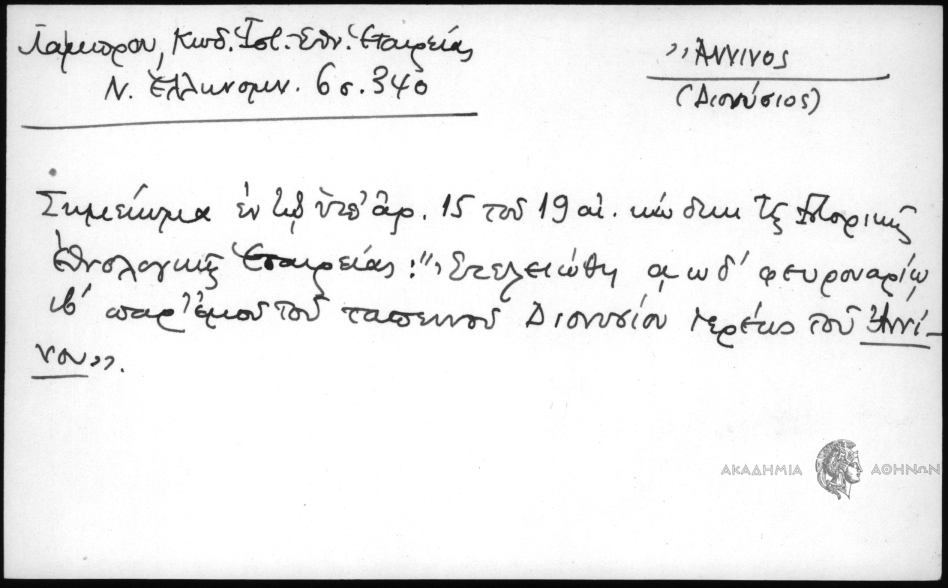 Λάμπρου, Κωδ. Ἱστ.-Ἐθν. Ἑταιρείας
Ν. Ἑλληνομν. 6 σ. 340
"Ἄννινος
(Διονύσιος)
Σημείωμα ἐν τῷ ὑπ' ἀρ. 15 τοῦ 19 αἰ. κώδικι τῆς Ἱστορικῆς
Ἐθνολογικῆς Ἑταιρείας: "Ἐτελειώθη αωδ' φευρουαρίω
ιβ' παρ' ἐμοῦ τοῦ ταπεινοῦ Διονυσίου ἱερέως τοῦ Ἀννί-
νου".
ΑΚΑΔΗΜΙΑ ΑΘΗΝΩΝ